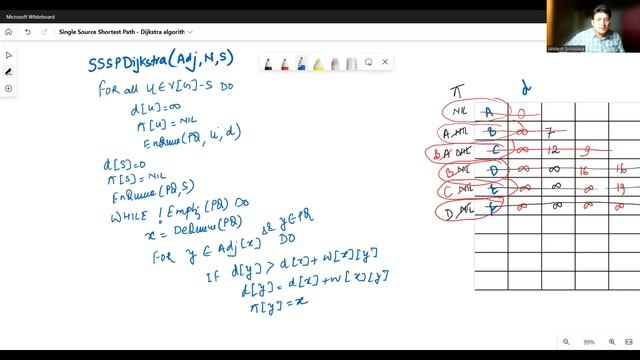 Microsoft Whiteboard
Single Source Shortest Path - Dijkstra algorith
Akhilesh Srivastava
SSSPDijkstra(Adj,N,S)
For all u∈V[G]-S DO
d[u]=∞
π[u]=NIL
EnQueue(PQ, u, d)
d[S]=0
π[S]=NIL
EnQueue(PQ,S)
WHILE !Empty(PQ) DO
x = DeQueue(PQ)
For y ∈ Adj[x] && y∈PQ DO
If d[y] > d[x]+W[x][y]
d[y] = d[x]+W[x][y]
π[y]=x
π d
NIL A 0
A NIL B ∞ 7
B A NIL C ∞ 12 9
B NIL D ∞ ∞ 16 16
C NIL E ∞ ∞ ∞ 19
D NIL F ∞ ∞ ∞ ∞
99%